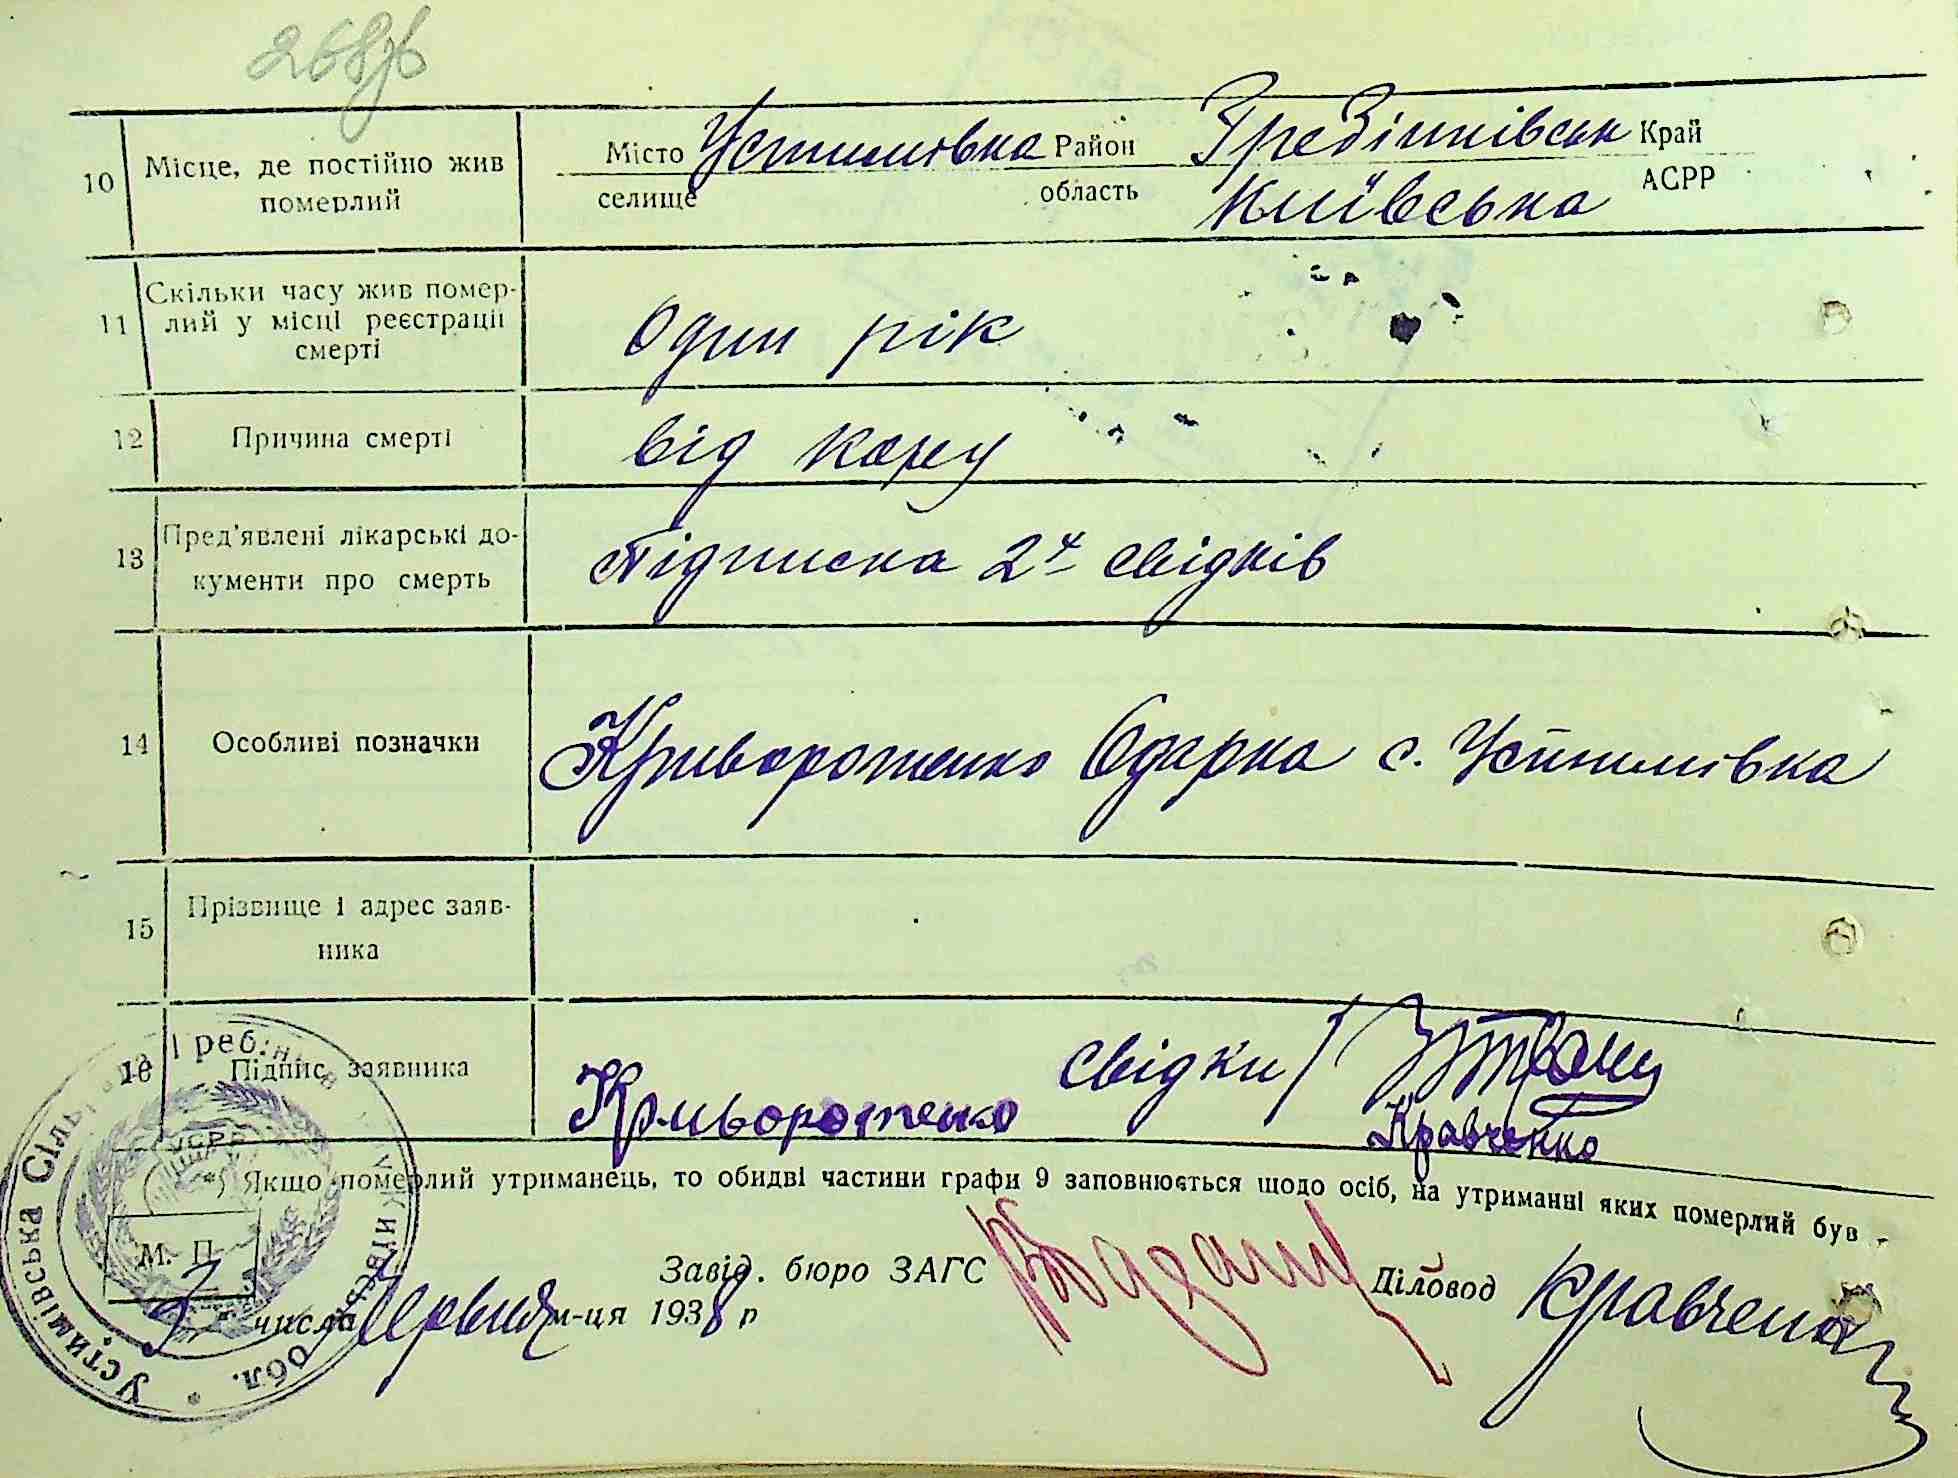 268зв
10 Місце, де постійно жив померлий
Місто селище Устимовка Район область Гребінківськ Київська Край АСРР
11 Скільки часу жив померлий у місці реєстрації смерті
один рік
12 Причина смерті
від кору
13 Пред'явлені лікарські документи про смерть
Підписка 2х свідків
14 Особливі позначки
Кривороженко Одарка с. Устимівка
15 Прізвище і адрес заявника
16 Підпис заявника
Кривороженко свідки
Кравченко
*) Якщо померлий утриманець, то обидві частини графи 9 заповнюється щодо осіб, на утриманні яких померлий був
М. П.
Завід. бюро ЗАГС Діловод Кравченко
2 числа Червня м-ця 1938 р
Устимівська Сільрада Київськ. обл.
УСРР